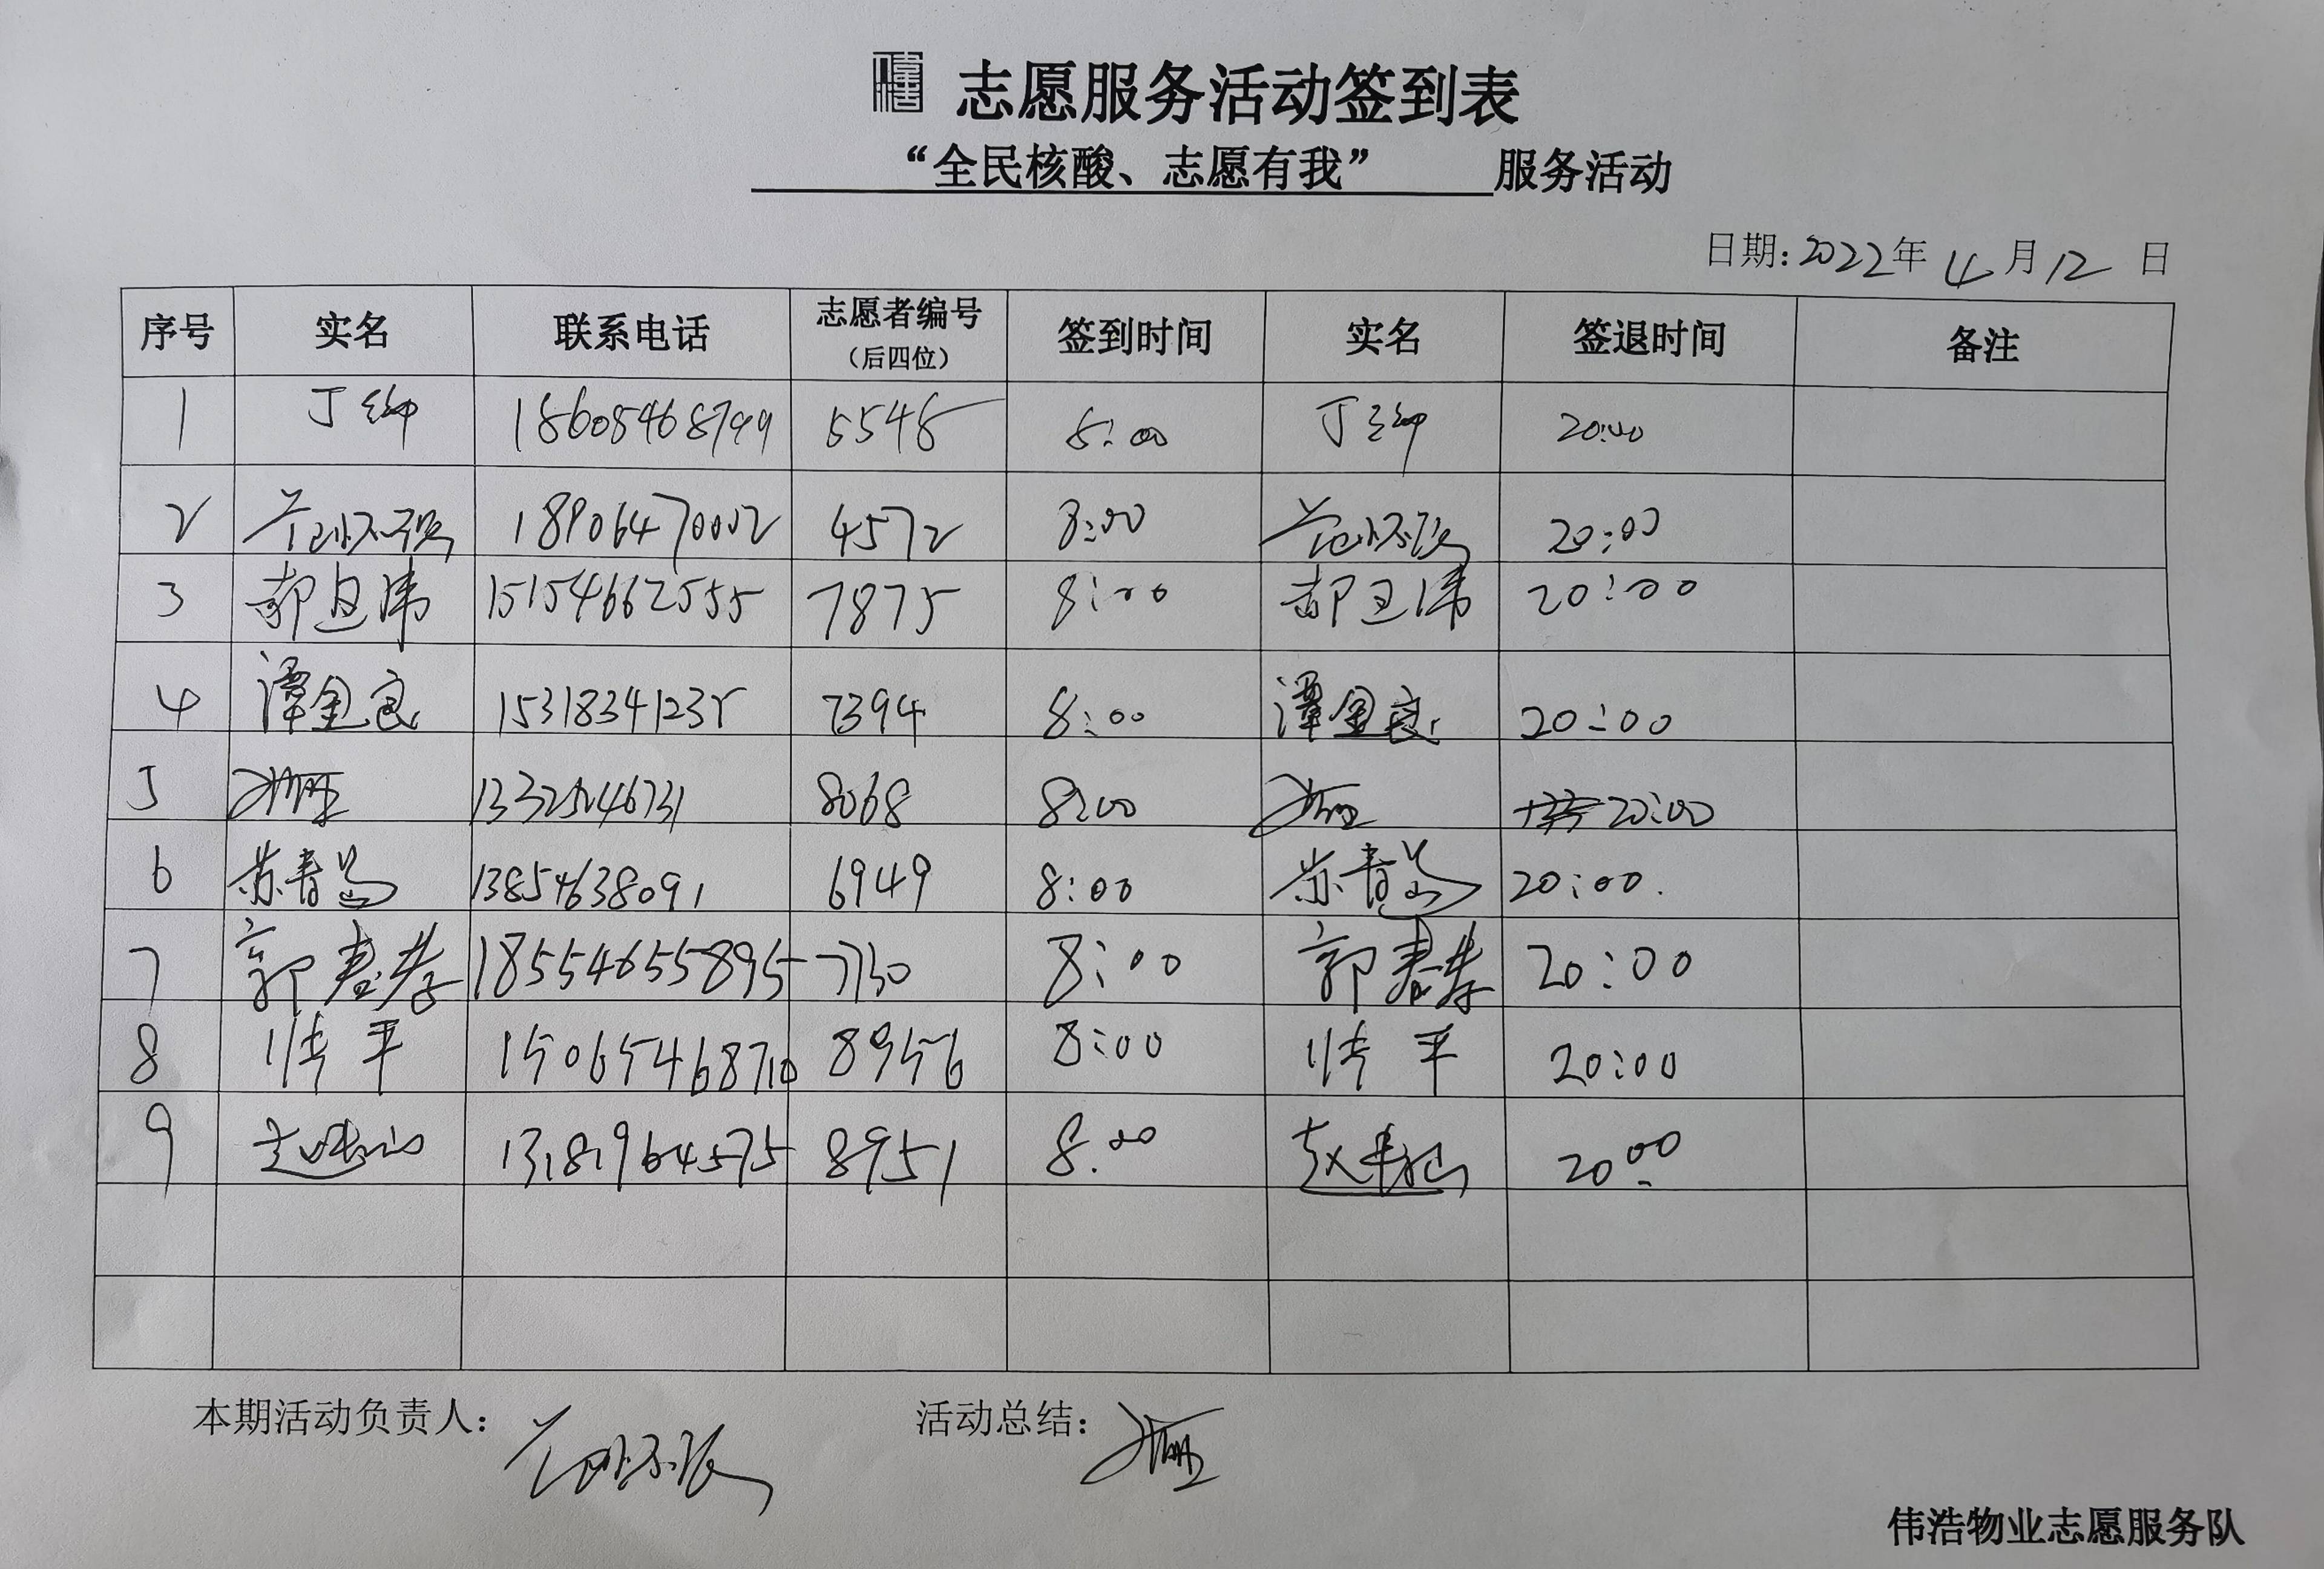 志愿服务活动签到表
“全民核酸、志愿有我” 服务活动
日期:2022年 4 月 12 日
序号 实名 联系电话 志愿者编号（后四位） 签到时间 实名 签退时间 备注
1 丁 18605468799 5548 8:00 丁 20:00
2 18906470002 4572 8:00 20:00
3 郝卫涛 15154662555 7875 8:00 郝卫涛 20:00
4 谭金良 15318341235 7394 8:00 谭金良 20:00
5 8068 8:00 20:00
6 苏青 13854638091 6949 8:00 苏青 20:00
7 郭春孝 18554655895 7130 8:00 郭春孝 20:00
8 平 15065468710 8956 8:00 平 20:00
9 赵 13181964575 8951 8:00 赵 20:00
本期活动负责人: 活动总结:
伟浩物业志愿服务队